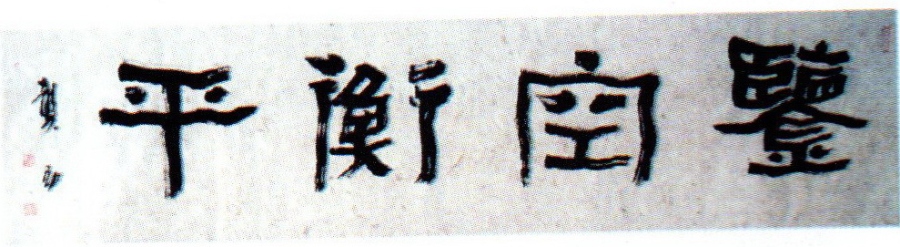 鑒空衡平